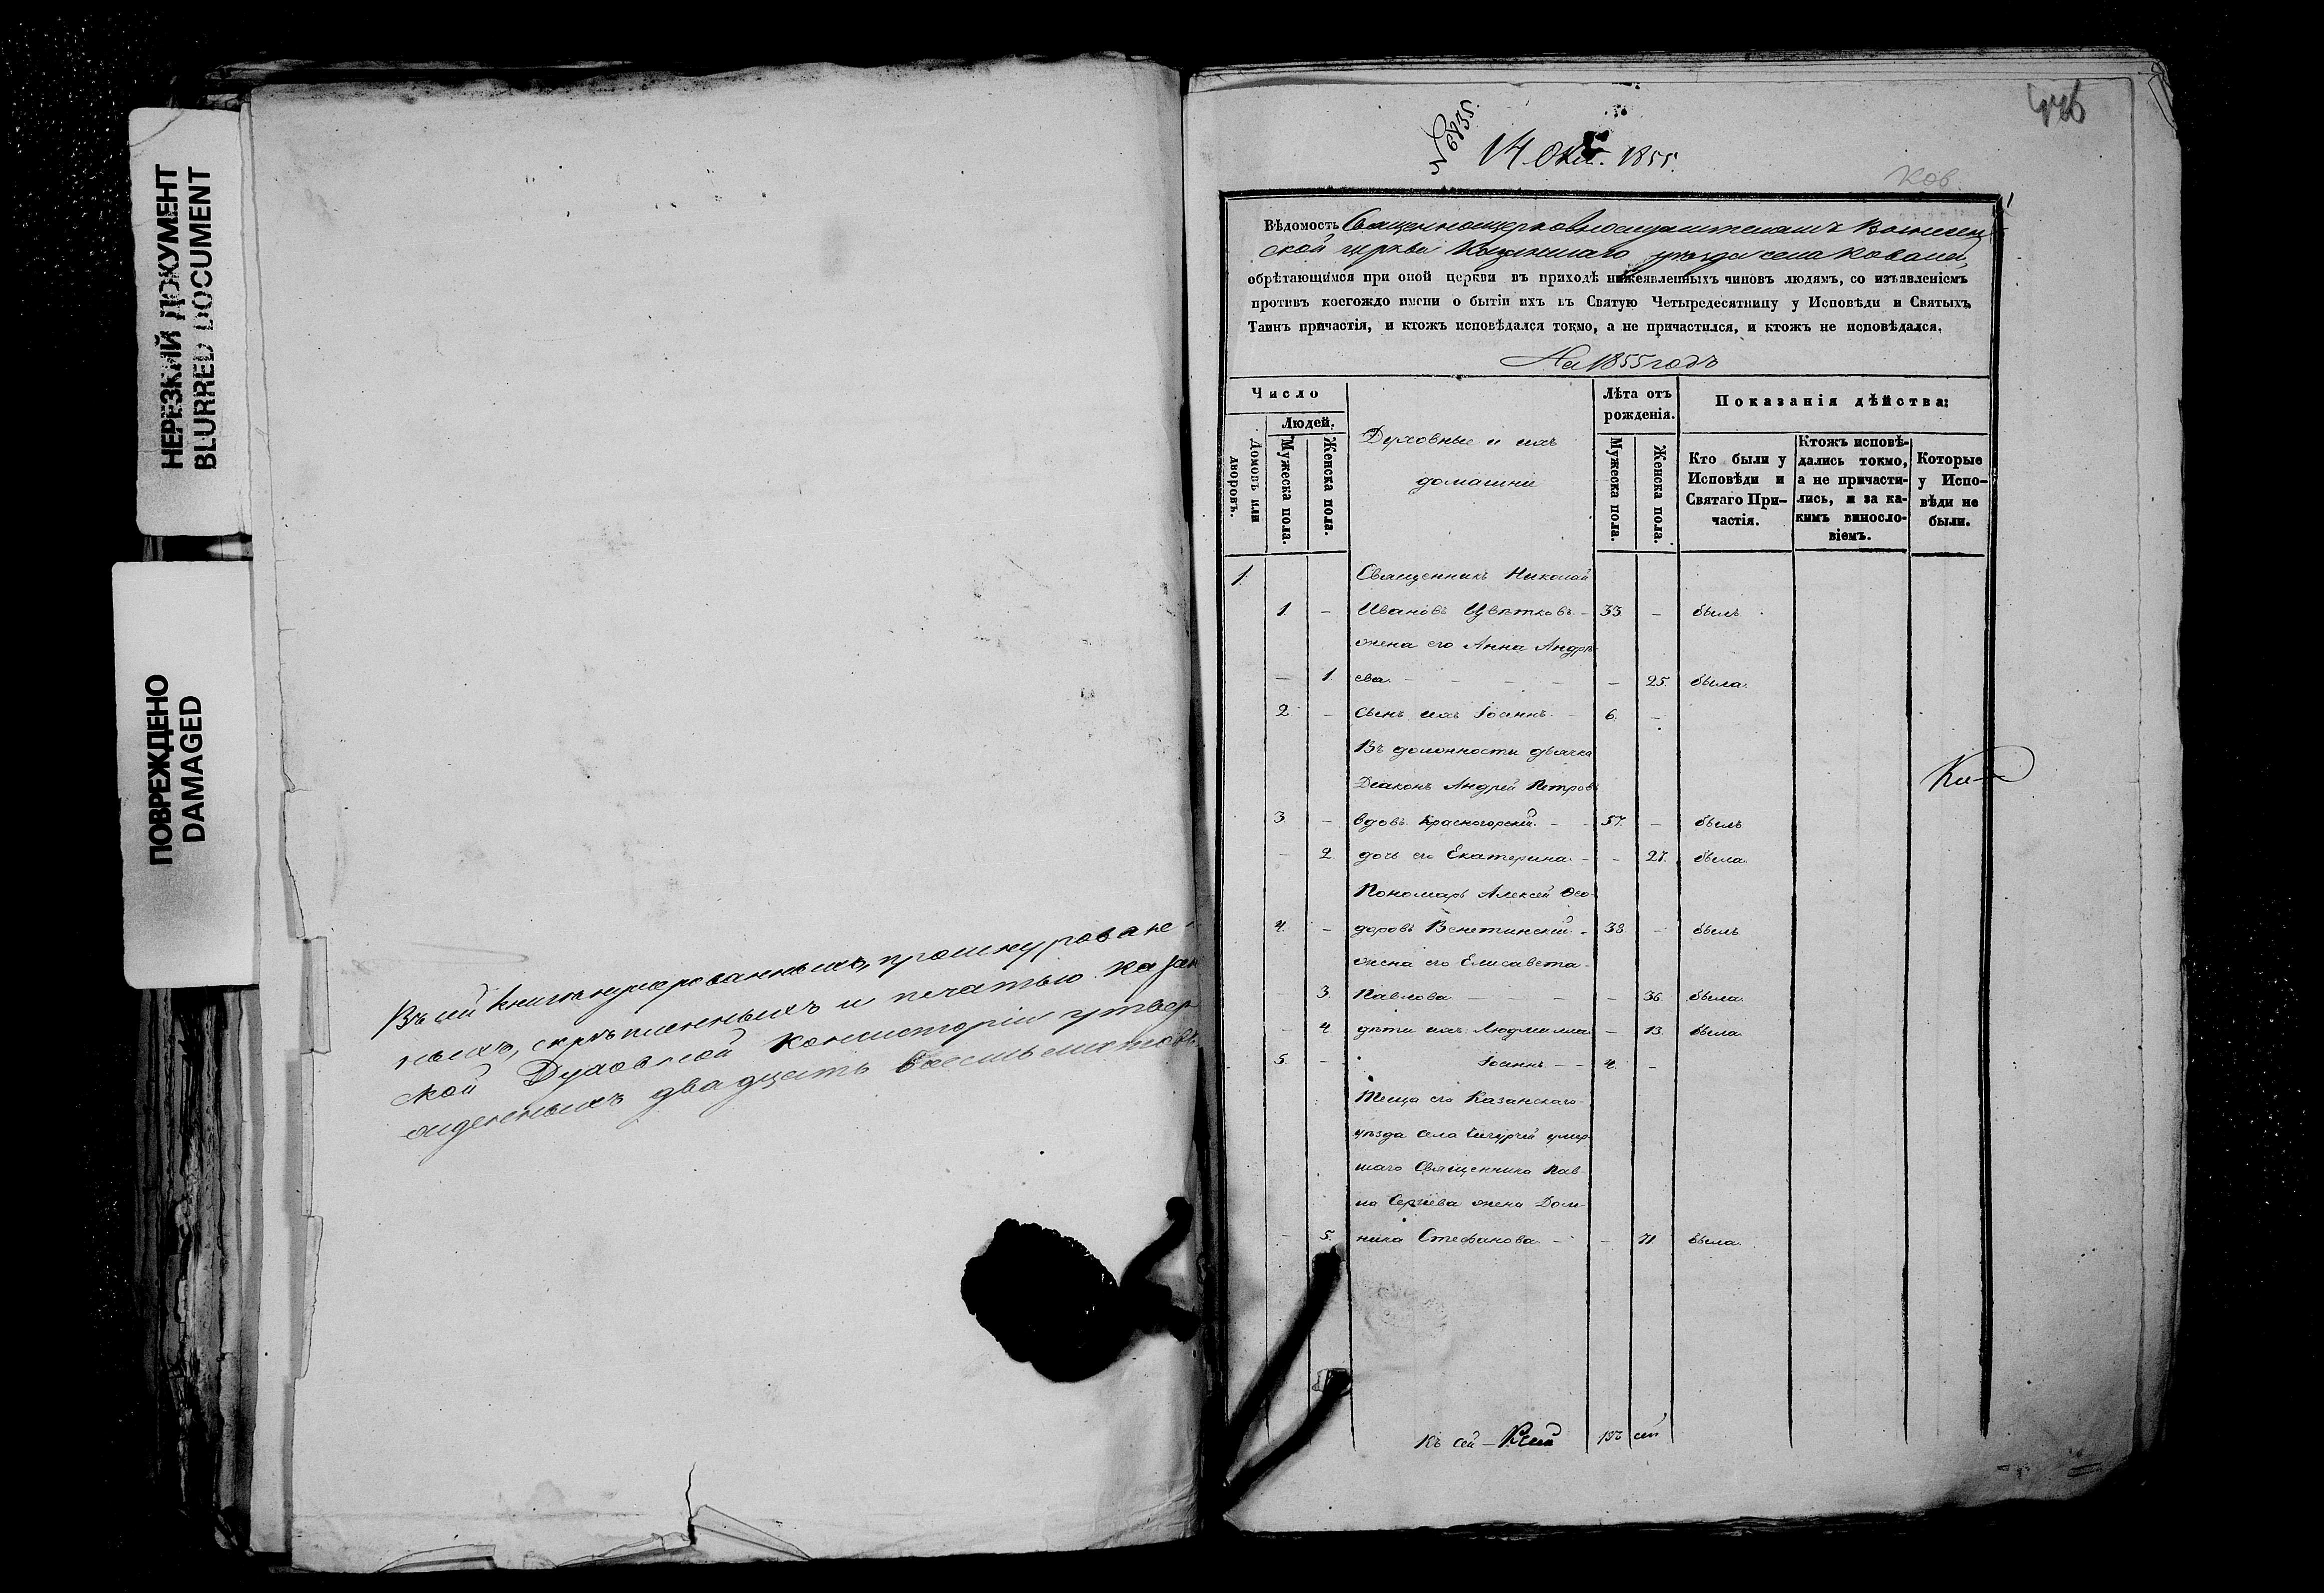 НЕРЕЗКИЙ ДОКУМЕНТ
BLURRED DOCUMENT
ПОВРЕЖДЕНО
DAMAGED
Въ сей книгѣ нумерованныхъ, прошнурован
ныхъ, скрѣпленныхъ и печатью Казан
ской Духовной Консисторіи утвер
жденныхъ двадцать восемь листовъ
№ 6835.
14 Окт. 1855.
Ков.
Вѣдомость Священноцерковнослужителями Вознесен
ской церкви Казанскаго уѣзда села Ковалей,
обрѣтающимся при оной церкви въ приходѣ нижеявленныхъ чиновъ людямъ, со изъявленіемъ
противъ коегождо имени о бытіи ихъ въ Святую Четыредесятницу у Исповѣди и Святыхъ
Таинъ причастія, и ктожъ исповѣдался токмо, а не причастился, и ктожъ не исповѣдался.
На 1855 годъ
Число
Людей.
Домовъ или дворовъ.
Мужеска пола.
Женска пола.
Духовные и ихъ
домашніе
Лѣта отъ
рожденія.
Мужеска пола.
Женска пола.
Показанія дѣйства:
Кто были у
Исповѣди и
Святаго При-
частія.
Ктожъ исповѣ-
дались токмо,
а не причасти-
лись, и за ка-
кимъ винословіемъ.
Которые
у Испо-
вѣди не
были.
1. Священникъ Николай
1. – Ивановъ Цвѣтковъ – 33 – былъ
жена его Анна Андрѣ
– 1. ева – – – – – 25. была.
2. – сынъ ихъ Іоаннъ – 6. –
Въ должности дьячка
Діаконъ Андрей Петровъ
3 – вдовъ Красногорскій – 57. – былъ
– 2. дочь его Екатерина – – 27. была
Пономарь Алексей Ѳео
4. – доровъ Венетинскій – 38 – былъ
жена его Елисавета
3. Павлова – – – – 36. была
– 4 дѣти ихъ Людмилла – 13. была
5. – Іоаннъ – – 4. –
Теща его Казанскаго
уѣзда села умер
шаго Священника Пав
ла Сергіева жена Дом
– 5. ника Стефанова – – 71. была.
Къ сей